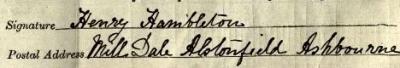 Signature Henry Hambleton
Postal Address Mill Dale Alstonfield Ashbourne